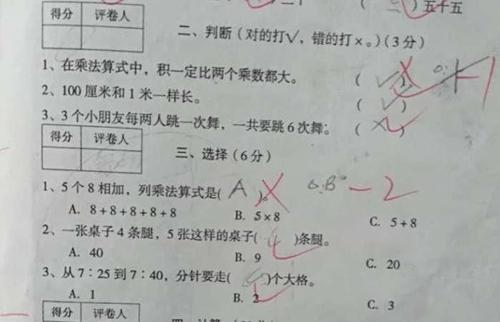 (二)五千五
得分 评卷人
二、判断(对的打√,错的打×。)(3分)
1、在乘法算式中,积一定比两个乘数都大。 (√) -1
2、100厘米和1米一样长。 (√)
3、3个小朋友每两人跳一次舞,一共要跳6次舞。 (×)
得分 评卷人
三、选择(6分)
1、5个8相加,列乘法算式是(A)。 × B -2
A. 8+8+8+8+8 B. 5×8 C. 5+8
2、一张桌子4条腿,5张这样的桌子( )条腿。
A. 40 B. 9 C. 20
3、从7:25到7:40,分针要走( )个大格。
A. 1 B. 2 C. 3
得分 评卷人